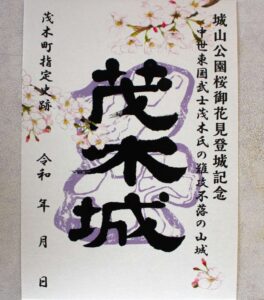 城山公園桜御花見登城記念
中世東国武士茂木氏の難攻不落の山城
茂木城
茂木町指定史跡
令和 年 月 日